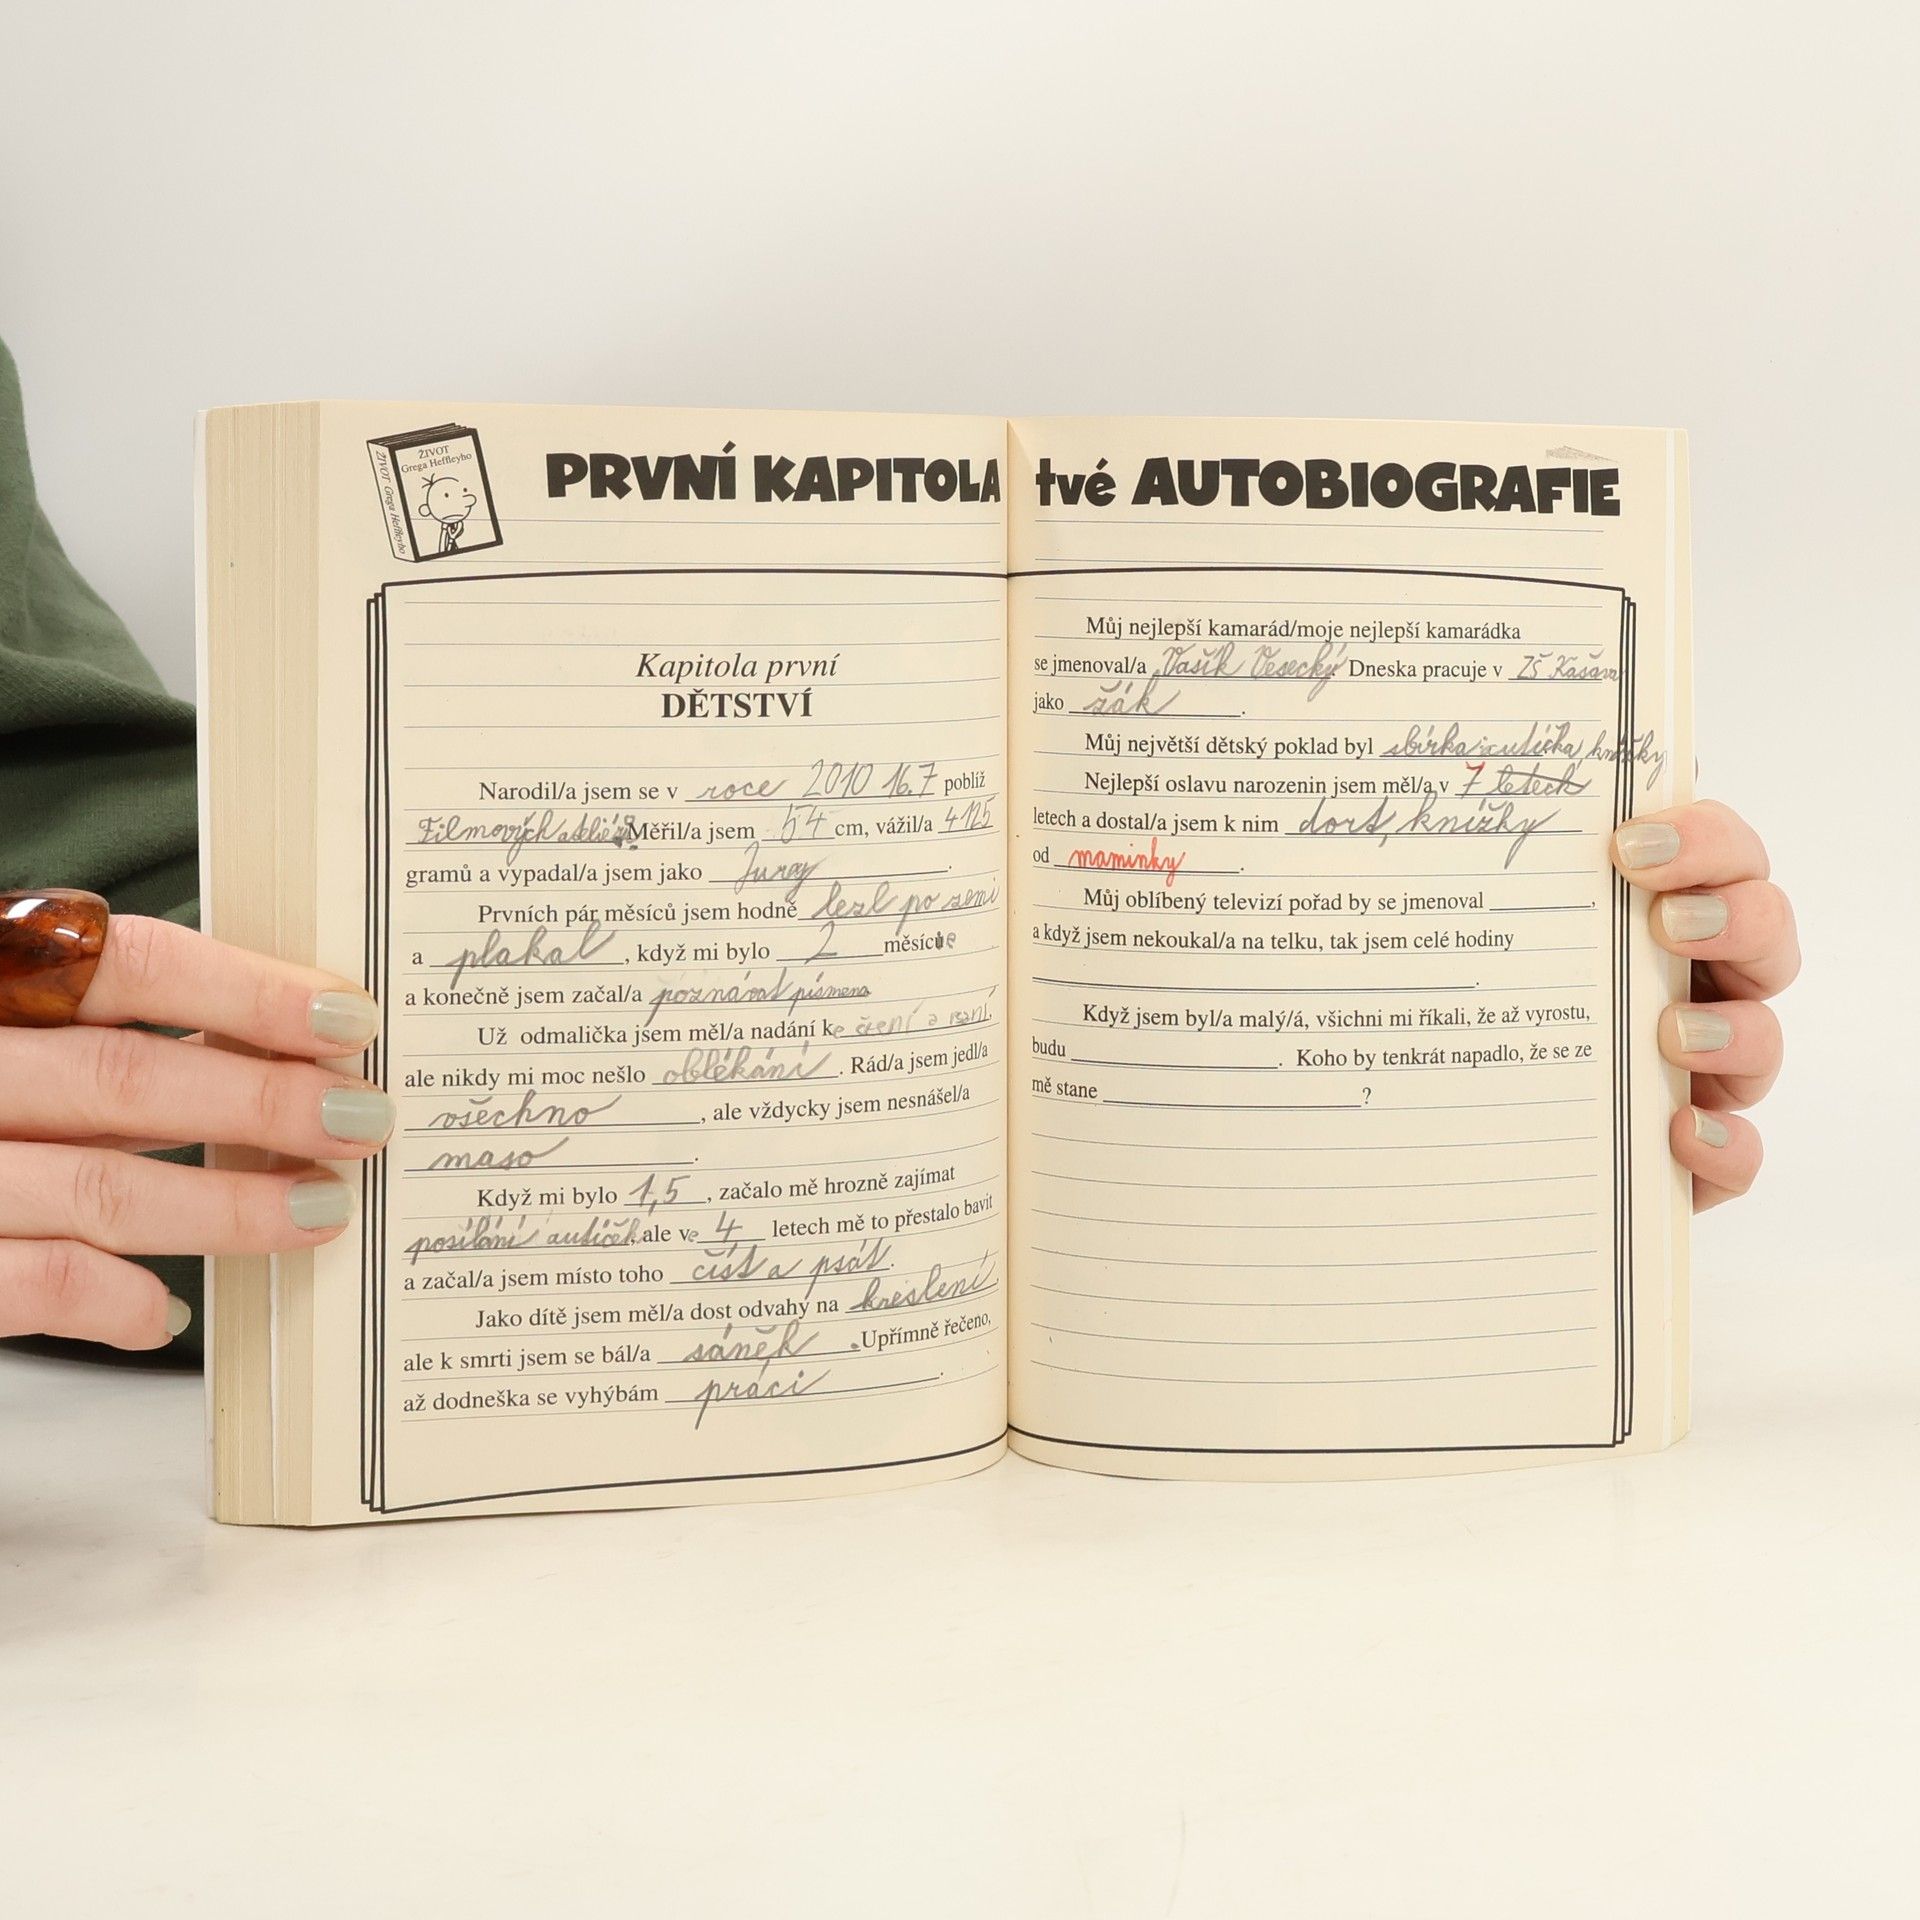 ŽIVOT
Grega Heffleyho
ŽIVOT Grega Heffleyho
PRVNÍ KAPITOLA tvé AUTOBIOGRAFIE
Kapitola první
DĚTSTVÍ
Narodil/a jsem se v roce 2010 16.7 poblíž
Filmových ateliérů. Měřil/a jsem 54 cm, vážil/a 4125
gramů a vypadal/a jsem jako ________.
Prvních pár měsíců jsem hodně lezl po zemi
a plakal, když mi bylo 2 měsíce
a konečně jsem začal/a poznávat písmena
Už odmalička jsem měl/a nadání ke čtení a psaní,
ale nikdy mi moc nešlo oblékání. Rád/a jsem jedl/a
všechno, ale vždycky jsem nesnášel/a
maso.
Když mi bylo 1,5, začalo mě hrozně zajímat
posílání autíček, ale ve 4 letech mě to přestalo bavit
a začal/a jsem místo toho číst a psát.
Jako dítě jsem měl/a dost odvahy na kreslení,
ale k smrti jsem se bál/a sáněk. Upřímně řečeno,
až dodneška se vyhýbám práci.
Můj nejlepší kamarád/moje nejlepší kamarádka
se jmenoval/a Vašík Veselký. Dneska pracuje v ZŠ Kašava
jako žák.
Můj největší dětský poklad byl sbírka autíčka, knížky
Nejlepší oslavu narozenin jsem měl/a v 7 letech
letech a dostal/a jsem k nim dort, knížky
od maminky.
Můj oblíbený televizí pořad by se jmenoval ________,
a když jsem nekoukal/a na telku, tak jsem celé hodiny
________.
Když jsem byl/a malý/á, všichni mi říkali, že až vyrostu,
budu ________. Koho by tenkrát napadlo, že se ze
mě stane ________?